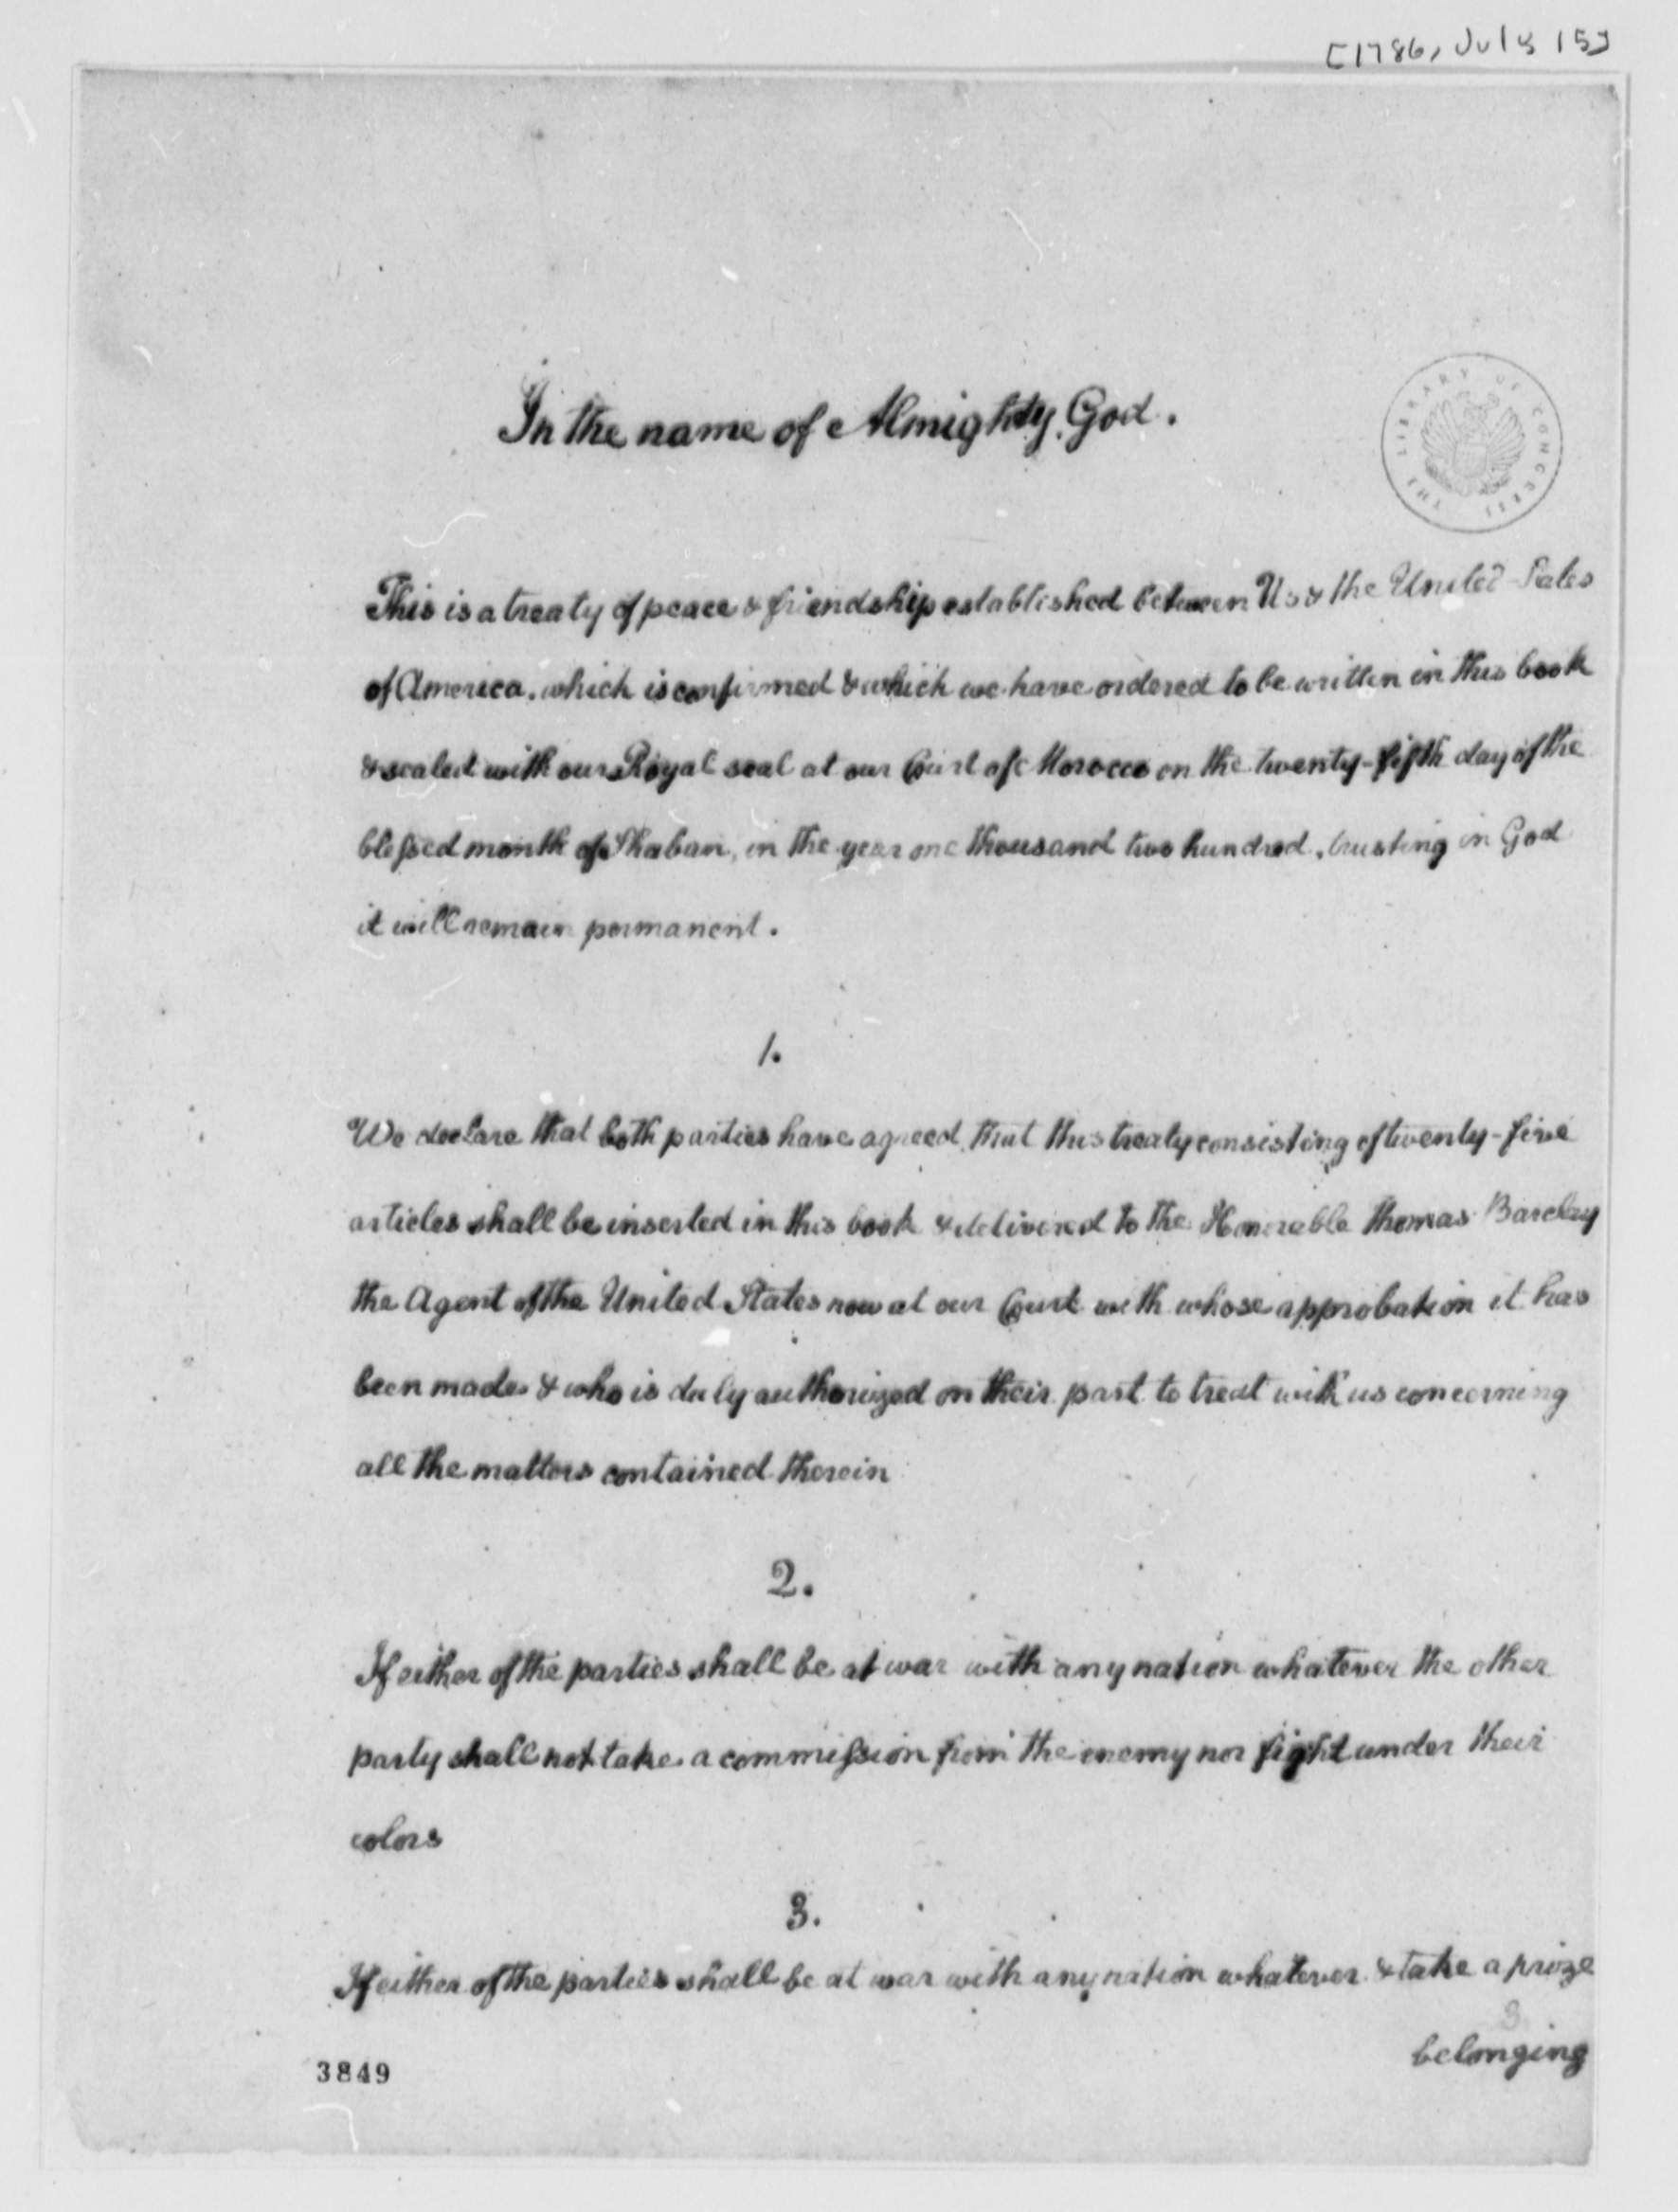 [1786, July 15]
In the name of Almighty God.
THE LIBRARY OF CONGRESS
This is a treaty of peace & friendship established between Us & the United States
of America. which is confirmed & which we have ordered to be written in this book
& sealed with our Royal seal at our Court of Morocco on the twenty-fifth day of the
blessed month of Shaban, in the year one thousand two hundred, trusting in God
it will remain permanent.
1.
We declare that both parties have agreed that this treaty consisting of twenty-five
articles shall be inserted in this book & delivered to the Honorable Thomas Barclay
the Agent of the United States now at our Court with whose approbation it has
been made & who is duly authorized on their part to treat with us concerning
all the matters contained therein
2.
If either of the parties shall be at war with any nation whatever the other
party shall not take a commission from the enemy nor fight under their
colors
3.
If either of the parties shall be at war with any nation whatever & take a prize
belonging
3849